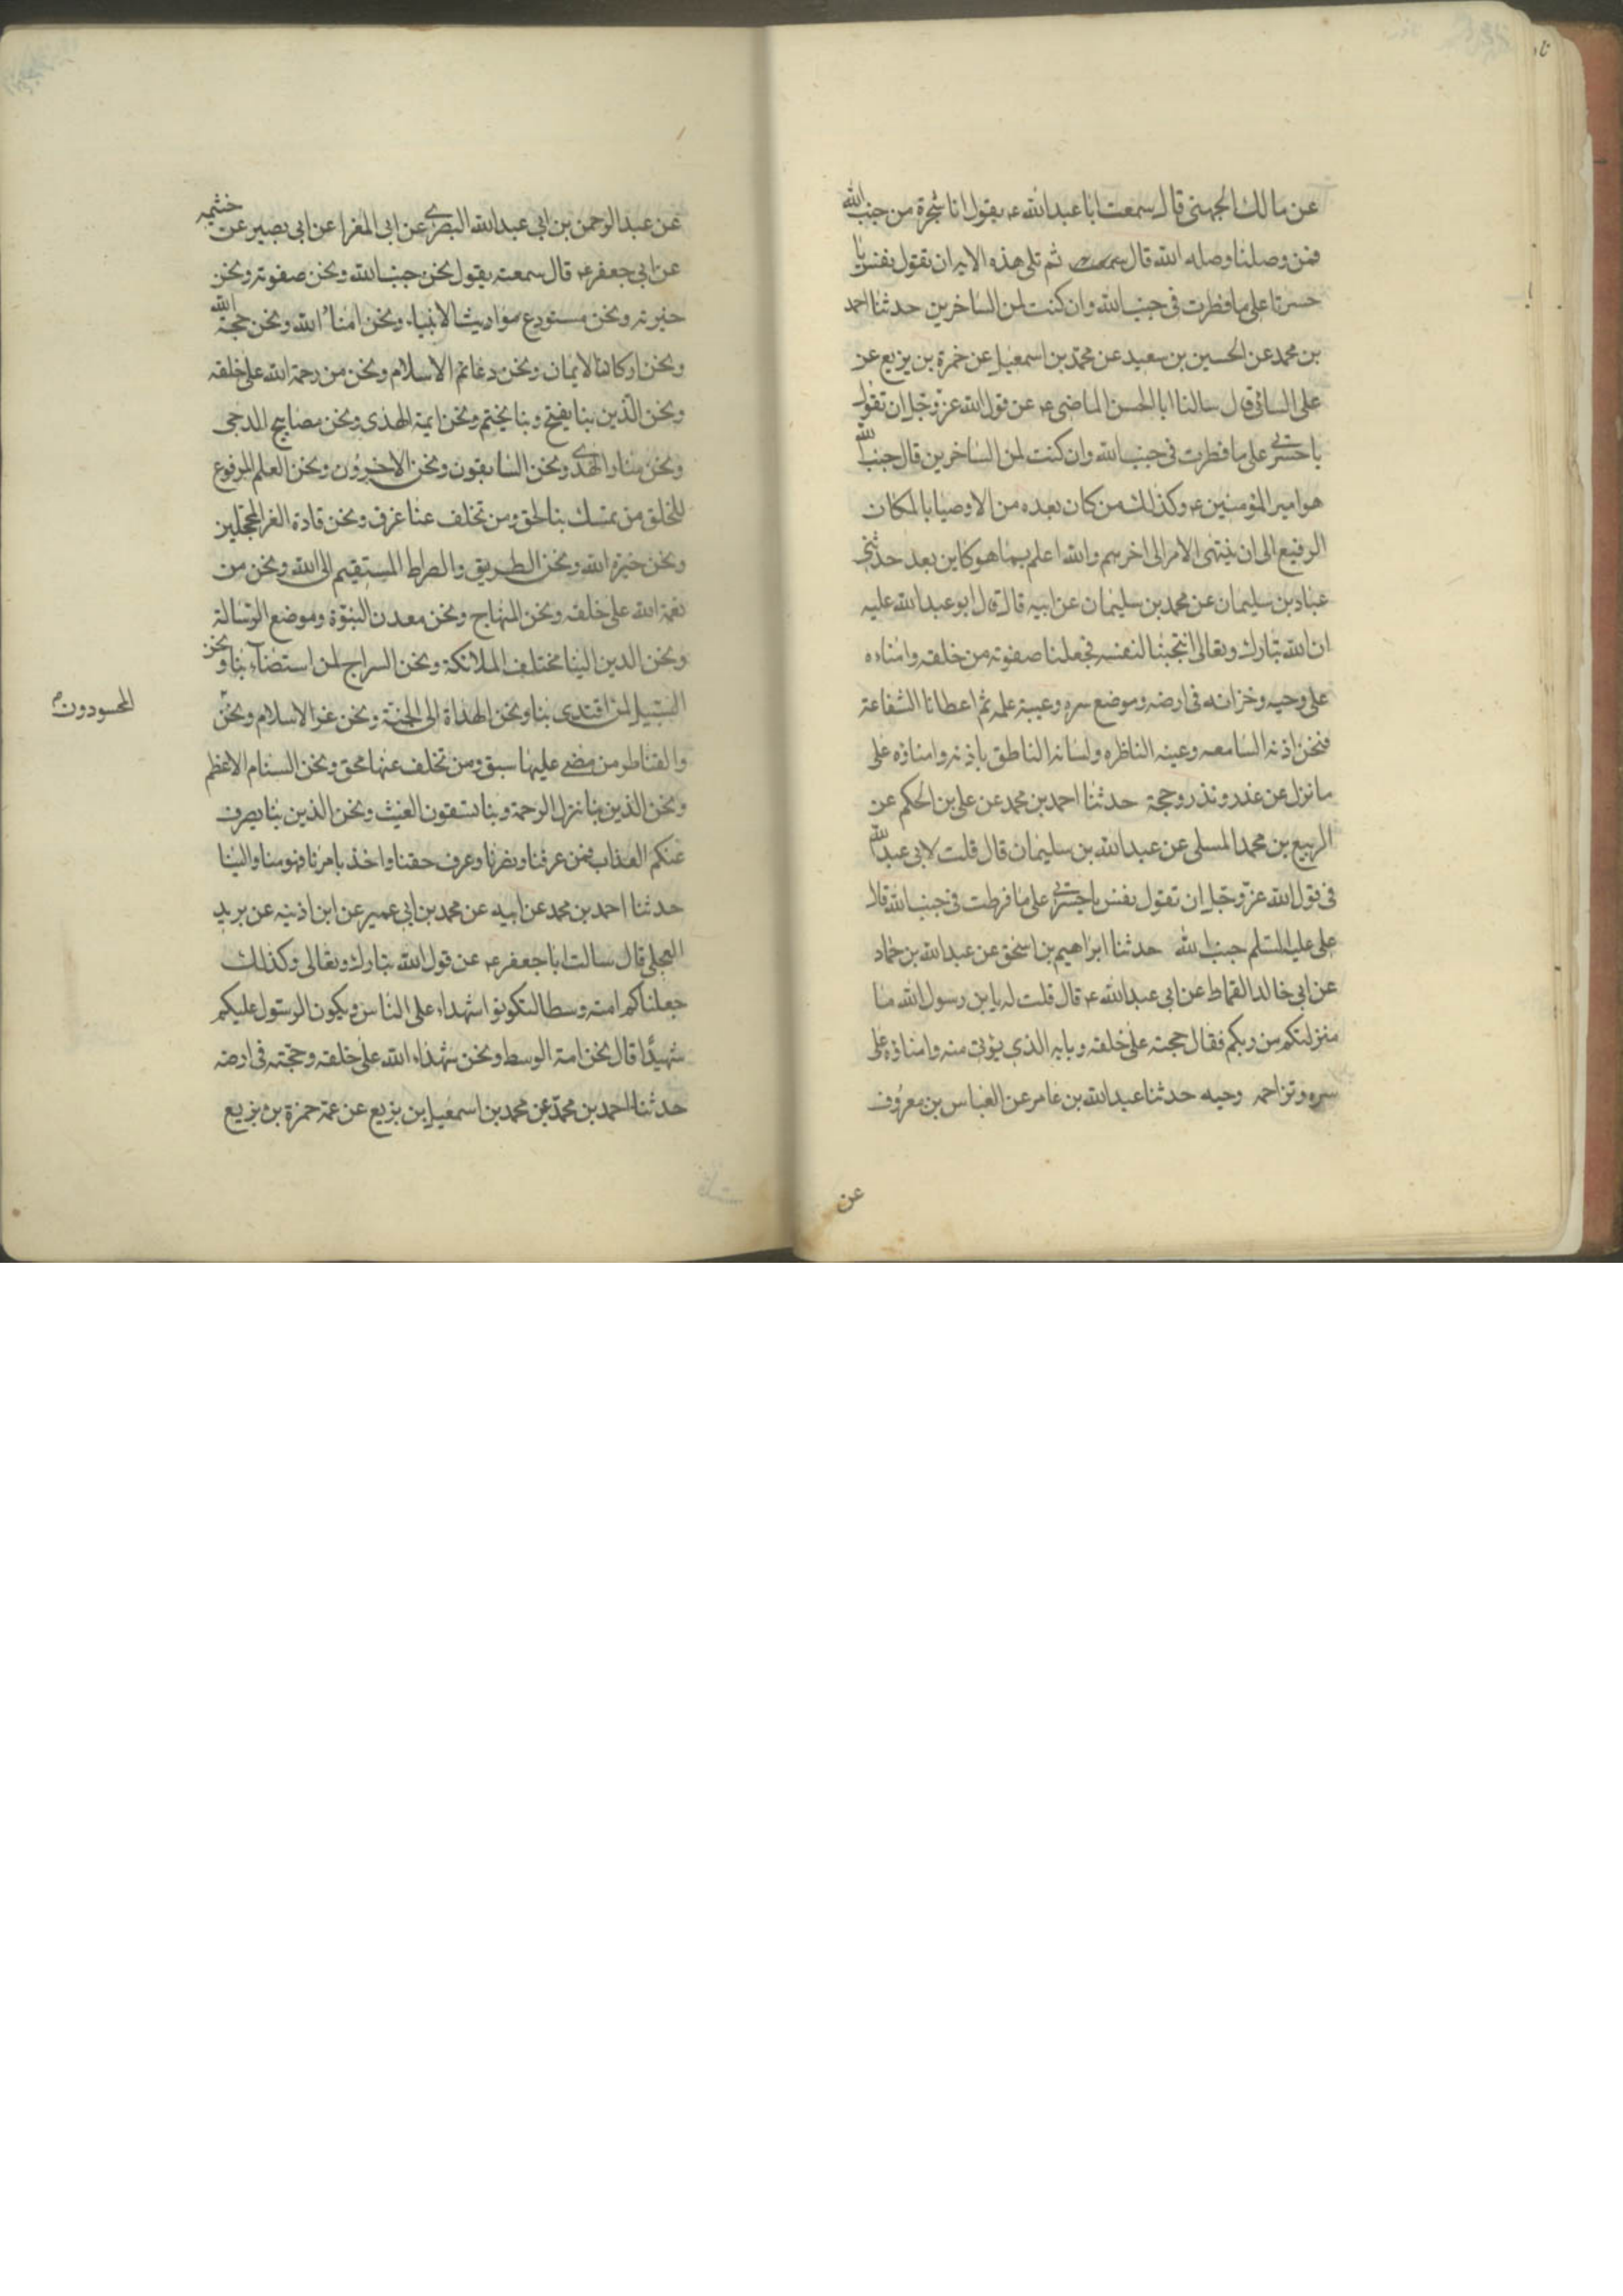 عن مالك الجهنى قال سمعت ابا عبد الله ع يقول انا شجرة من جنب الله
فمن وصلنا وصله الله قال ثم تلى هذه الايه ان تقول نفس يا
حسرتا على ما فطرت فى جنب الله وان كنت لمن الساخرين حدثنا احمد
بن محمد عن الحسين بن سعيد عن محمد بن اسمعيل عن حمزة بن بزيع عن
على السائى قال سالنا ابا الحسن الماضى ع عن قول الله عز وجل ان تقول
يا حسرتى على ما فطرت فى جنب الله وان كنت لمن الساخرين قال جنب الله
هو امير المؤمنين ع وكذلك من كان بعده من الاوصيا بالمكان
الرفيع الى ان ينتهى الامر الى اخرهم والله اعلم بما هو كاين بعد حدثنى
عباد بن سليمان عن محمد بن سليمان عن ابيه قال قال ابو عبد الله عليه
ان الله تبارك وتعالى انتجبنا لنفسه فجعلنا صفوته من خلقه وامناءه
على وحيه وخزانه فى ارضه وموضع سره وعيبة علمه ثم اعطانا الشفاعة
فنحن اذنه السامعه وعينه الناظره ولسانه الناطق باذنه وامناؤه على
ما نزل عن عذر ونذر وحجة حدثنا احمد بن محمد عن على بن الحكم عن
الربيع بن محمد المسلى عن عبد الله بن سليمان قال قلت لابى عبد الله
فى قول الله عز وجل ان تقول نفس يا حسرتى على ما فرطت فى جنب الله قال
على عليه السلم جنب الله حدثنا ابراهيم بن اسحق عن عبد الله بن حماد
عن ابى خالد القماط عن ابى عبد الله ع قال قلت له يا بن رسول الله ما
منزلتكم من ربكم فقال حجته على خلقه وبابه الذى يؤتى منه وامناؤه على
سره وتراجمه وحيه حدثنا عبد الله بن عامر عن العباس بن معروف
عن
عن عبد الرحمن بن ابى عبد الله البصرى عن ابى المغرا عن ابى بصير عن خثيمه
عن ابى جعفر ع قال سمعته يقول نحن جنب الله ونحن صفوته ونحن
خيرته ونحن مستودع مواريث الانبياء ونحن امناء الله ونحن حجة الله
ونحن اركان الايمان ونحن دعائم الاسلام ونحن من رحمة الله على خلقه
ونحن الذين بنا يفتح وبنا يختم ونحن ايمة الهدى ونحن مصابيح الدجى
ونحن منار الهدى ونحن السابقون ونحن الاخرون ونحن العلم المرفوع
للخلق من تمسك بنا لحق ومن تخلف عنا غرق ونحن قادة الغر المحجلين
ونحن خيرة الله ونحن الطريق والصراط المستقيم الى الله ونحن من
نعمة الله على خلقه ونحن المنهاج ونحن معدن النبوة وموضع الرسالة
ونحن الدين الينا مختلف الملائكة ونحن السراج لمن استضاء بنا ونحن
السبيل لمن اقتدى بنا ونحن الهداة الى الجنة ونحن عز الاسلام ونحن
والقناطر من مضى عليها سبق ومن تخلف عنها محق ونحن السنام الاعظم
ونحن الذين بنا نزل الرحمة وبنا تسقون الغيث ونحن الذين بنا يصرف
عنكم العذاب فمن عرفنا ونصرنا وعرف حقنا واخذ بامرنا فهو منا والينا
حدثنا احمد بن محمد عن ابيه عن محمد بن ابى عمير عن ابن اذينه عن بريد
العجلى قال سالت ابا جعفر ع عن قول الله تبارك وتعالى وكذلك
جعلناكم امة وسطا لتكونوا شهداء على الناس ويكون الرسول عليكم
شهيدا قال نحن امة الوسط ونحن شهداء الله على خلقه وحجته فى ارضه
حدثنا احمد بن محمد عن محمد بن اسمعيل بن بزيع عن عمه حمزة بن بزيع